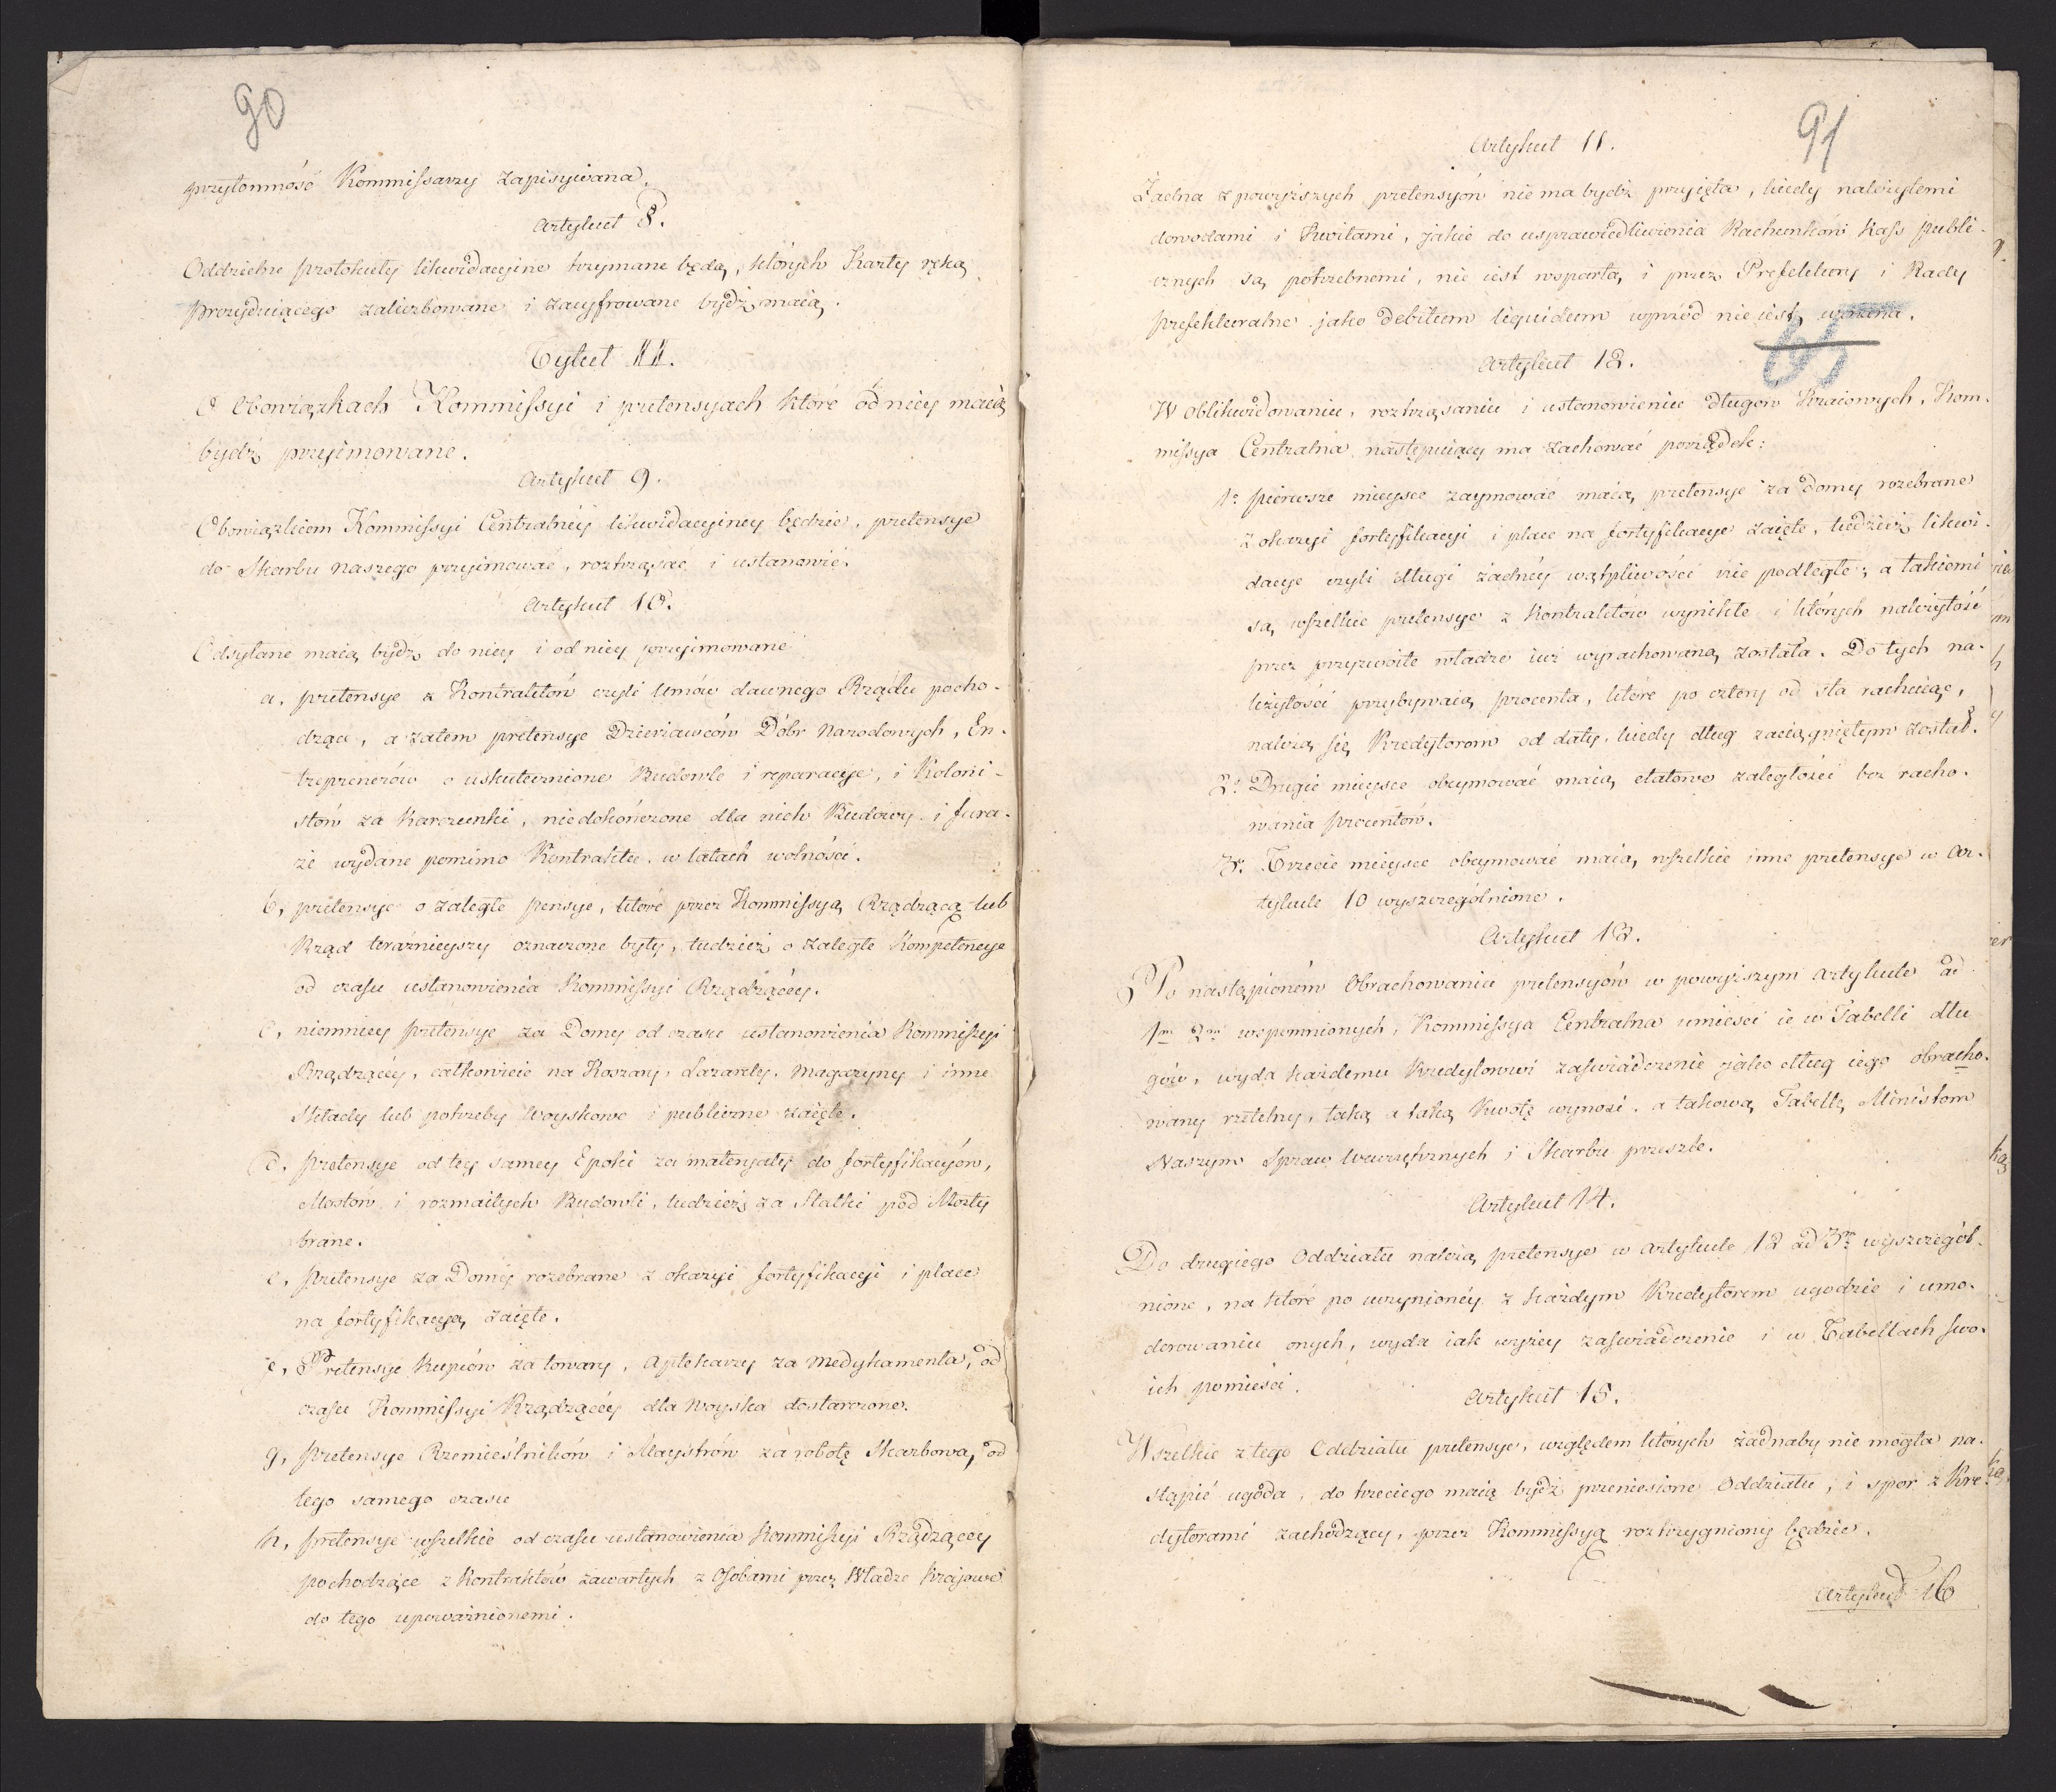 90
przytomność Kommissarzy zapisywana.
Artykuł 8.
Oddzielne protokuły likwidacyine trzymane będą, których Karty ręką
Prezyduiącego zaliczbowane i zacyfrowane bydź maią.
Tytuł II.
O Obowiązkach Kommissyi i pretensyach które od niey maią
bydź przyimowane.
Artykuł 9.
Obowiązkiem Kommissyi Centralnéy likwidacyiney będzie, pretensye
do Skarbu naszego przyimować, roztrząsać i ustanowić.
Artykuł 10.
Odsyłane maią bydź do niey i od niey przyimowane
a, pretensye z Kontraktów czyli Umów dawnego Rządu pocho-
dzące, a zatem pretensye Dzierżawców Dóbr Narodowych, En-
treprenerów o uskutecznione Budowle i reparacye, i Koloni-
stów za Karczunki, niedokończone dla nich Budowy i fura-
że wydane pomimo Kontraktu w latach wolności.
b, pretensye o zaległe pensye, które przez Kommissyą Rządzącą lub
Rząd teraźnieyszy oznaczone były, tudzież o zaległe Kompetencye
od czasu ustanowienia Kommissyi Rządzącéy.
c, niemniey pretensye za Domy od czasu ustanowienia Kommissyi
Rządzącéy, całkowicie na Koszary, Lazarety, Magazyny i inne
Składy lub potrzeby Woyskowe i publiczne zaięte.
d, pretensye od tey samey Epoki za materyały do fortyfikacyów,
Mostów i rozmaitych Budowli, tudzież za Statki pod Mosty
brane.
e, pretensye za Domy rozebrane z okazyi fortyfikacyi i place
na fortyfikacyą zaięte.
Pretensye Kupców za towary, Aptekarzy za medykamenta, od
czasu Kommissyi Rządzącéy dla Woyska dostarczone.
g, pretensye Rzemieślników i Maystrów za robotę Skarbową, od
tego samego czasu
h, pretensye wszelkie od czasu ustanowienia Kommissyi Rządzącey
pochodzące z Kontraktów zawartych z Osobami przez Władze Kraiowe
do tego upoważnionemi.
91
Artykuł 11.
Żadna z powyższych pretensyów nie ma bydź przyięta, kiedy należytemi
dowodami i Kwitami, jakie do usprawiedliwienia Rachunków Kass publi-
cznych są potrzebnemi, nie iest wspartą, i przez Prefektury i Rady
prefekturalne jako debitum liquidum wprzód nie iest uznana.
Artykuł 12.
W oblikwidowaniu, roztrząsaniu i ustanowieniu długów Kraiowych, Kom-
missya Centralna następuiący ma zachować porządek:
1o pierwsze mieysce zaymować maią pretensye za domy rozebrane
z okazyi fortyfikacyi i place na fortyfikacye zaięte, tudzież likwi-
dacye czyli długi żadnéy wątpliwości nie podległe; a takiemi
są, wszelkie pretensye z Kontraktów wynikłe i których należytość
przez przyzwoite władze iuż wyrachowaną została. Do tych na-
leżytości przybywaią procenta, które po cztery od sta rachuiąc,
należą się Kredytorom od daty, kiedy dług zaciągniętym został.
2o Drugie mieysce obeymować maią etatowe zaległości bez racho-
wania procentów.
3o Trzecie mieysce obeymować maią, wszelkie inne pretensye w Ar-
tykule 10 wyszczególnione.
Artykuł 13.
Po nastąpioném Obrachowaniu pretensyów w powyższym Artykule ad
1m 2m wspomnionych, Kommissya Centralna umieści ie w Tabelli dłu
gów, wyda każdemu Kredytorowi zaświadczenie jako dług iego obracho-
wany rzetelny, taką a taką Kwotę wynosi, a takową Tabellę Ministrom
Naszym Spraw Wewnętrznych i Skarbu prześle.
Artykuł 14.
Do drugiego Oddziału należą pretensye w Artykule 12 ad 3m wyszczegól-
nione, na które po uczynionéy z każdym Kredytorem ugodzie i umo-
derowaniu onych, wyda iak wyżey zaświadczenie i w Tabellach swo-
ich pomieści.
Artykuł 15.
Wszelkie z tego Oddziału pretensye, względem których żadnaby nie mogła na-
stąpić ugoda, do trzeciego maią bydź przeniesione Oddziału, i spór z Kre
dytorami zachodzący, przez Kommissyą roztrzygniony będzie.
Artykuł 16